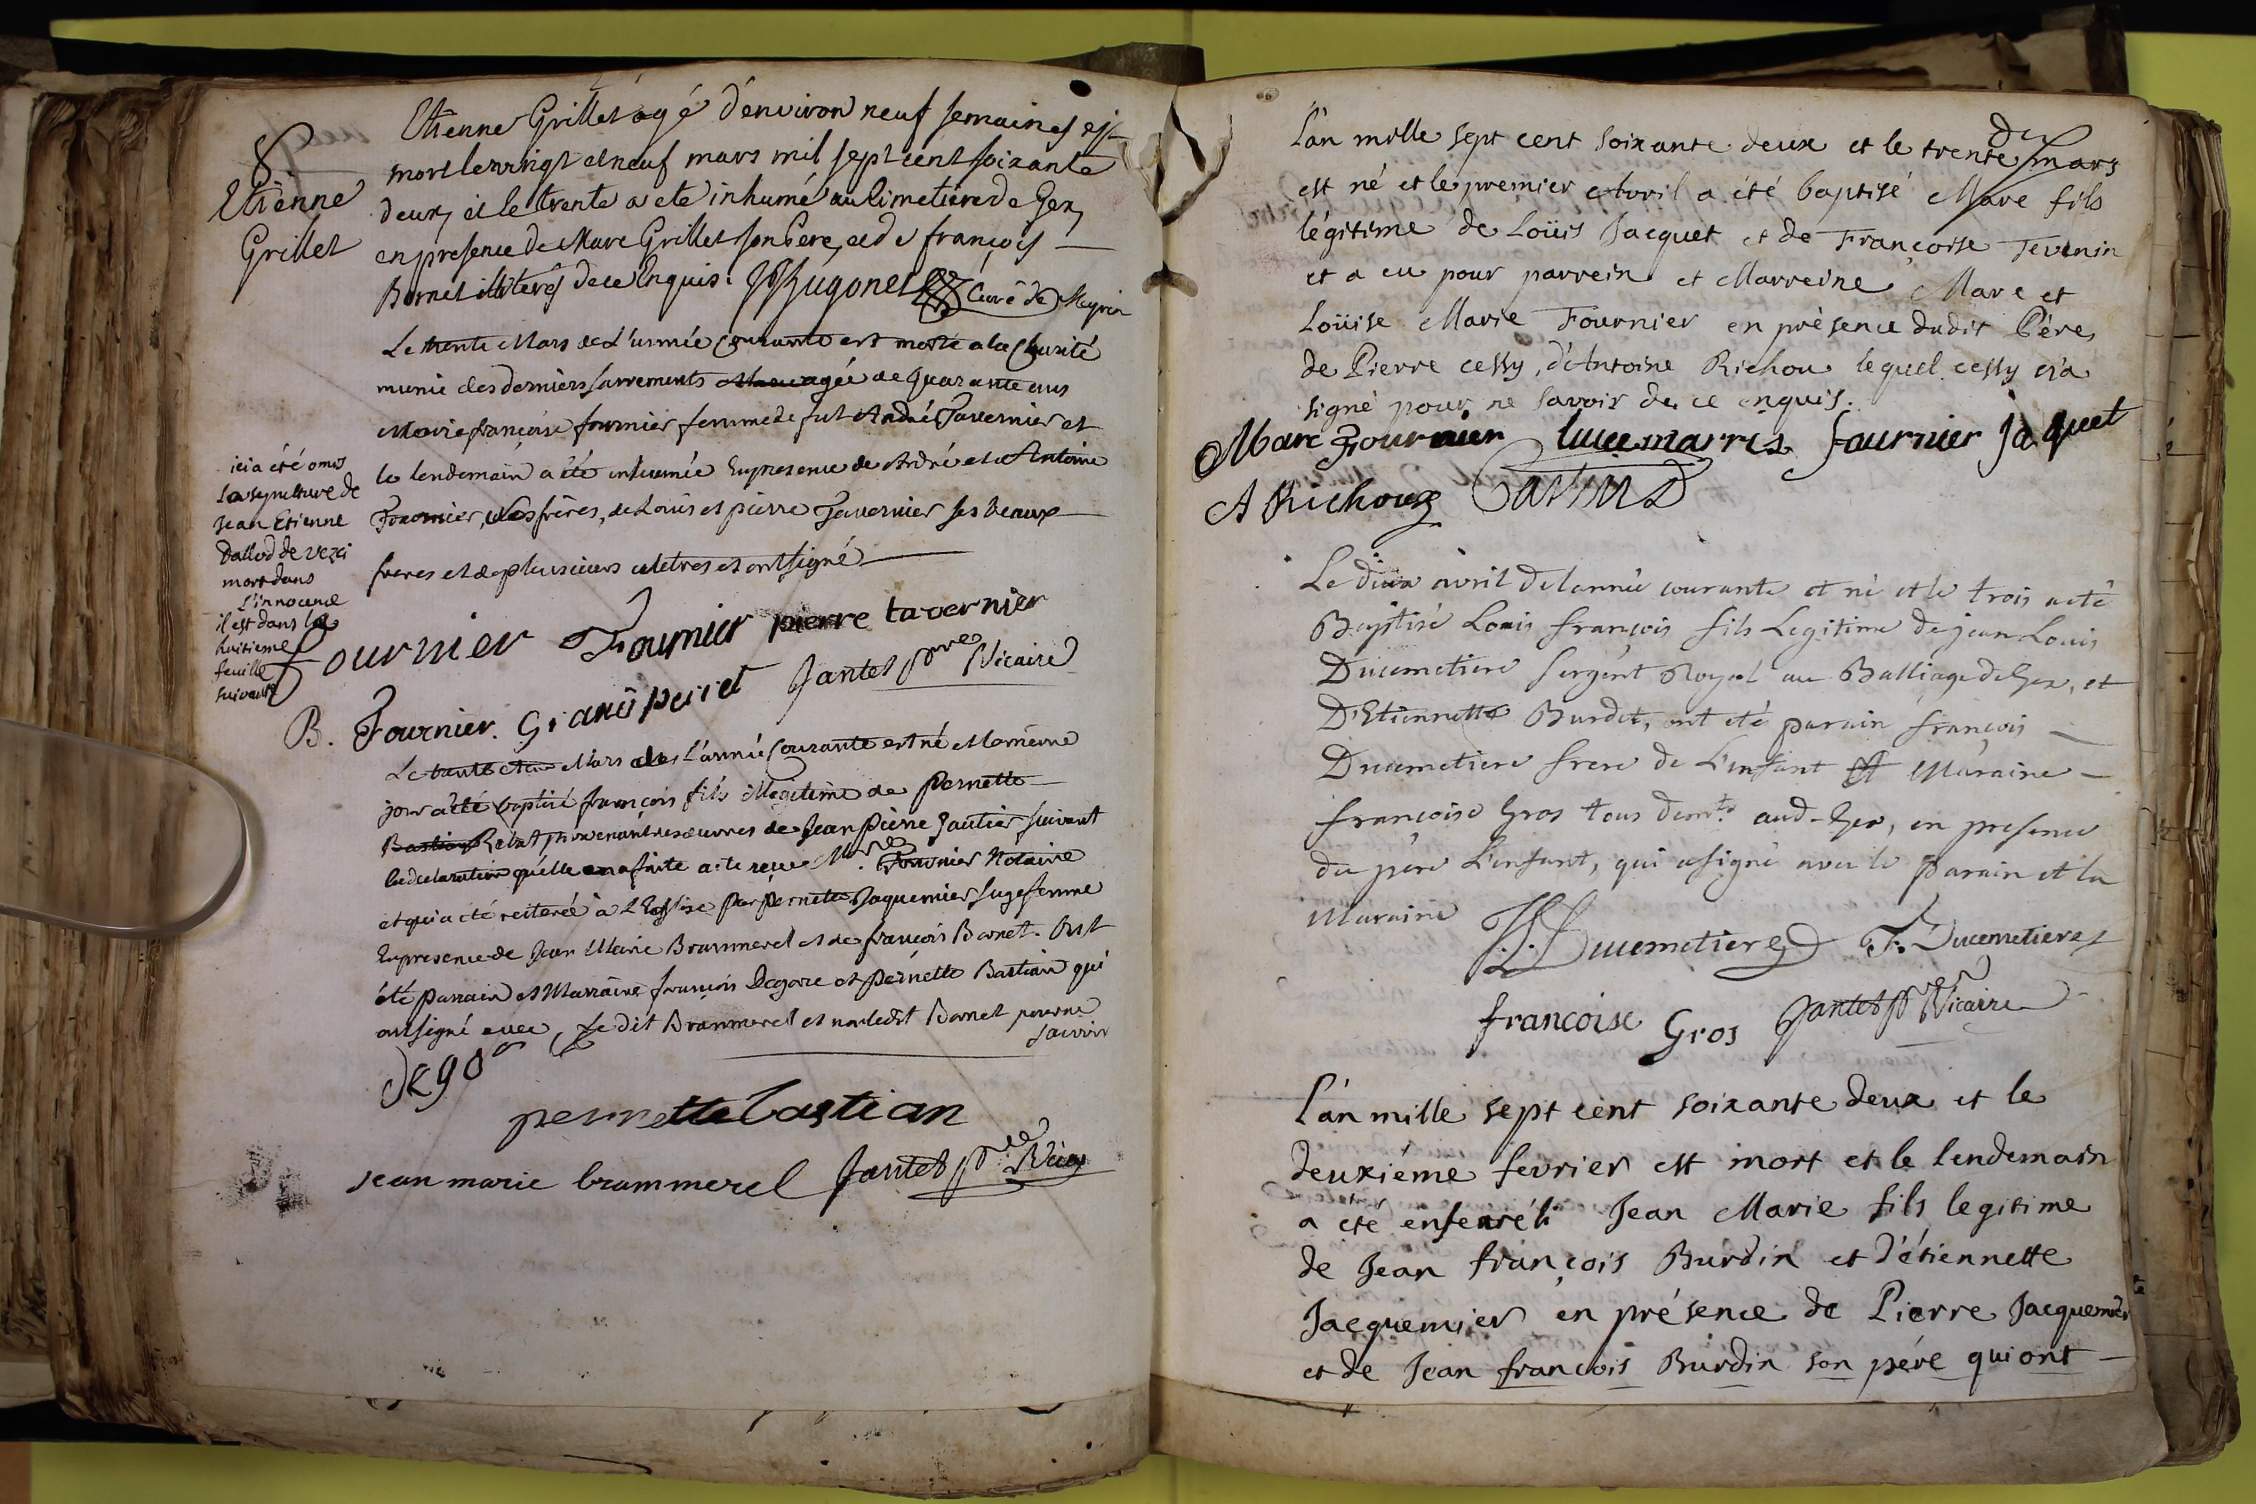 Etienne Grillet agé d'environ neuf semaines est
mort le vingt et neuf mars mil sept cent soixante
deux, et le trente a eté inhumé au Cimetiére de Gex,
en presence de Marc Grillet son Pere, et de françois
Bornet illiterés de ce Enquis. Hugonet Curé de Meyrin
8
Etienne
Grillet
Le trente Mars de L'année Courante est morte a la Charité
munie des derniers sacrements agée de quarante ans
Marie françoise fournier femme de fut André Tavernier et
le lendemain a été inhumée En presence de André et de Antoine
Fournier, ses frères, de Louis et pierre Tavernier ses beaux
freres et de plusieurs autres et ont signé
ici a été omis
la sepulture de
Jean Etienne
Dallod de vezei
mort dans
L'innocence
il est dans la
huitieme
feuille
suivante
fournier Fournier pierre tavernier
B. Fournier. Grand perret Jantet ptre Vicaire
Le Mars de L'année Courante est né et le même
jour a été baptisé françois fils illegitime de Pernette
des œuvres de Jean Pierre Gautier suivant
la declaration qu'elle en a faite a te reçue Mre Fournier Notaire
et qui a été reiterée à L'Eglise par pernette Jaquemier sage femme
En presence de Jean Marie Brammerel et de françois Bornet. Ont
été parrain et Marraine françois Degore et pernette Bastian qui
ont signé avec Le dit Brammerel et non ledit Bornet pour ne
savoir
pernette bastian
jean marie brammerel Jantet ptre Vicaire
L'an mille sept cent soixante deux et le trente de mars
est né et le premier Avril a été baptisé Marc fils
légitime de Loüis Jacquet et de Françoise Tevenin
et a eu pour parrein et Marreine Marc et
Loüise Marie Fournier en présence dudit Pére,
de Pierre cessy, d'Antoine Richou lequel cessy n'a
signé pour ne savoir de ce enquis.
Marc Fournier fournier jaquet
A Richoux
Le deux avril de lannée courante et né et le trois a eté
Baptisé Louis françois fils Legitime de jean Louis
Ducemetiere sergent Royal au Balliage de Gex, et
D'Etiennette Burdet, ont eté parain françois
Ducemetiere frere de L'enfant Et Maraine
françoise Gros tous demts aud. Gex, en presence
du père L'enfant, qui a signé avec le Parain et la
Maraine
Ducemetiere F. Ducemetiere
francoise Gros Jantet ptre Vicaire
L'an mille sept cent soixante deux et le
deuxiéme fevrier est mort et le lendemain
a eté enseveli Jean Marie fils legitime
de Jean françois Burdin et d'étiennette
Jacquemier en présence de Pierre Jacquemier
et de Jean françois Burdin son pére qui ont